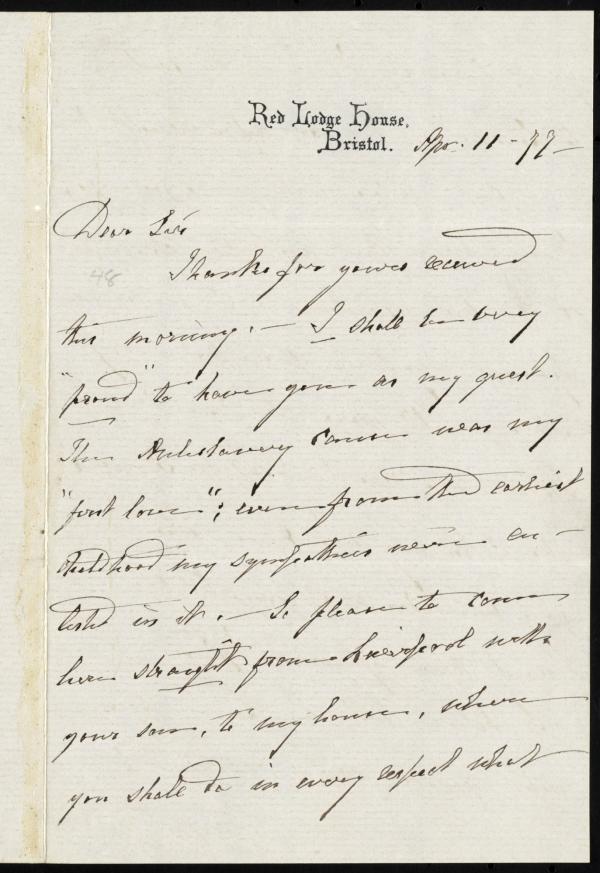 Red Lodge House,
Bristol. Apr. 11 - 77 -
Dear Sir
48
Thanks for yours received
this morning. - I shall be very
"proud" to have you as my guest.
The Antislavery cause was my
"first love"; even from the earliest
childhood my sympathies were en-
listed in it. - So please to come
here straight from Liverpool with
your son, to my house, where
you shall do in every respect what